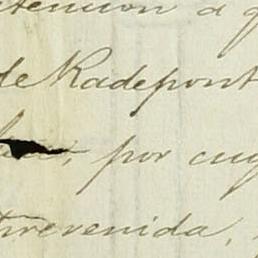 tencion a q
de Radepont
por cuy
trevenida,